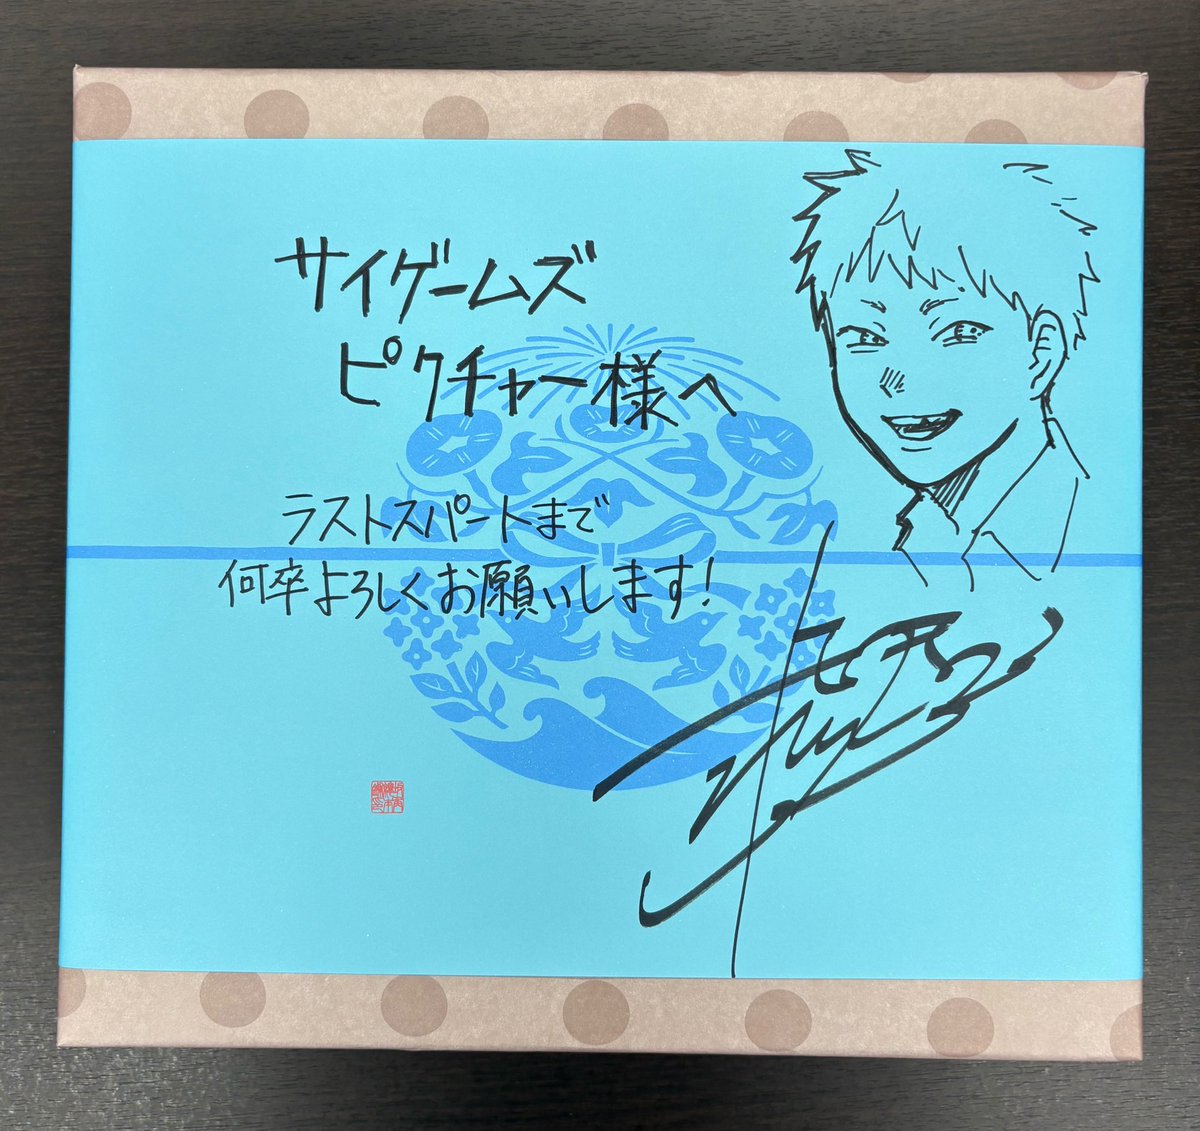 サイゲームズ
ピクチャー様へ
ラストスパートまで
何卒よろしくお願いします!